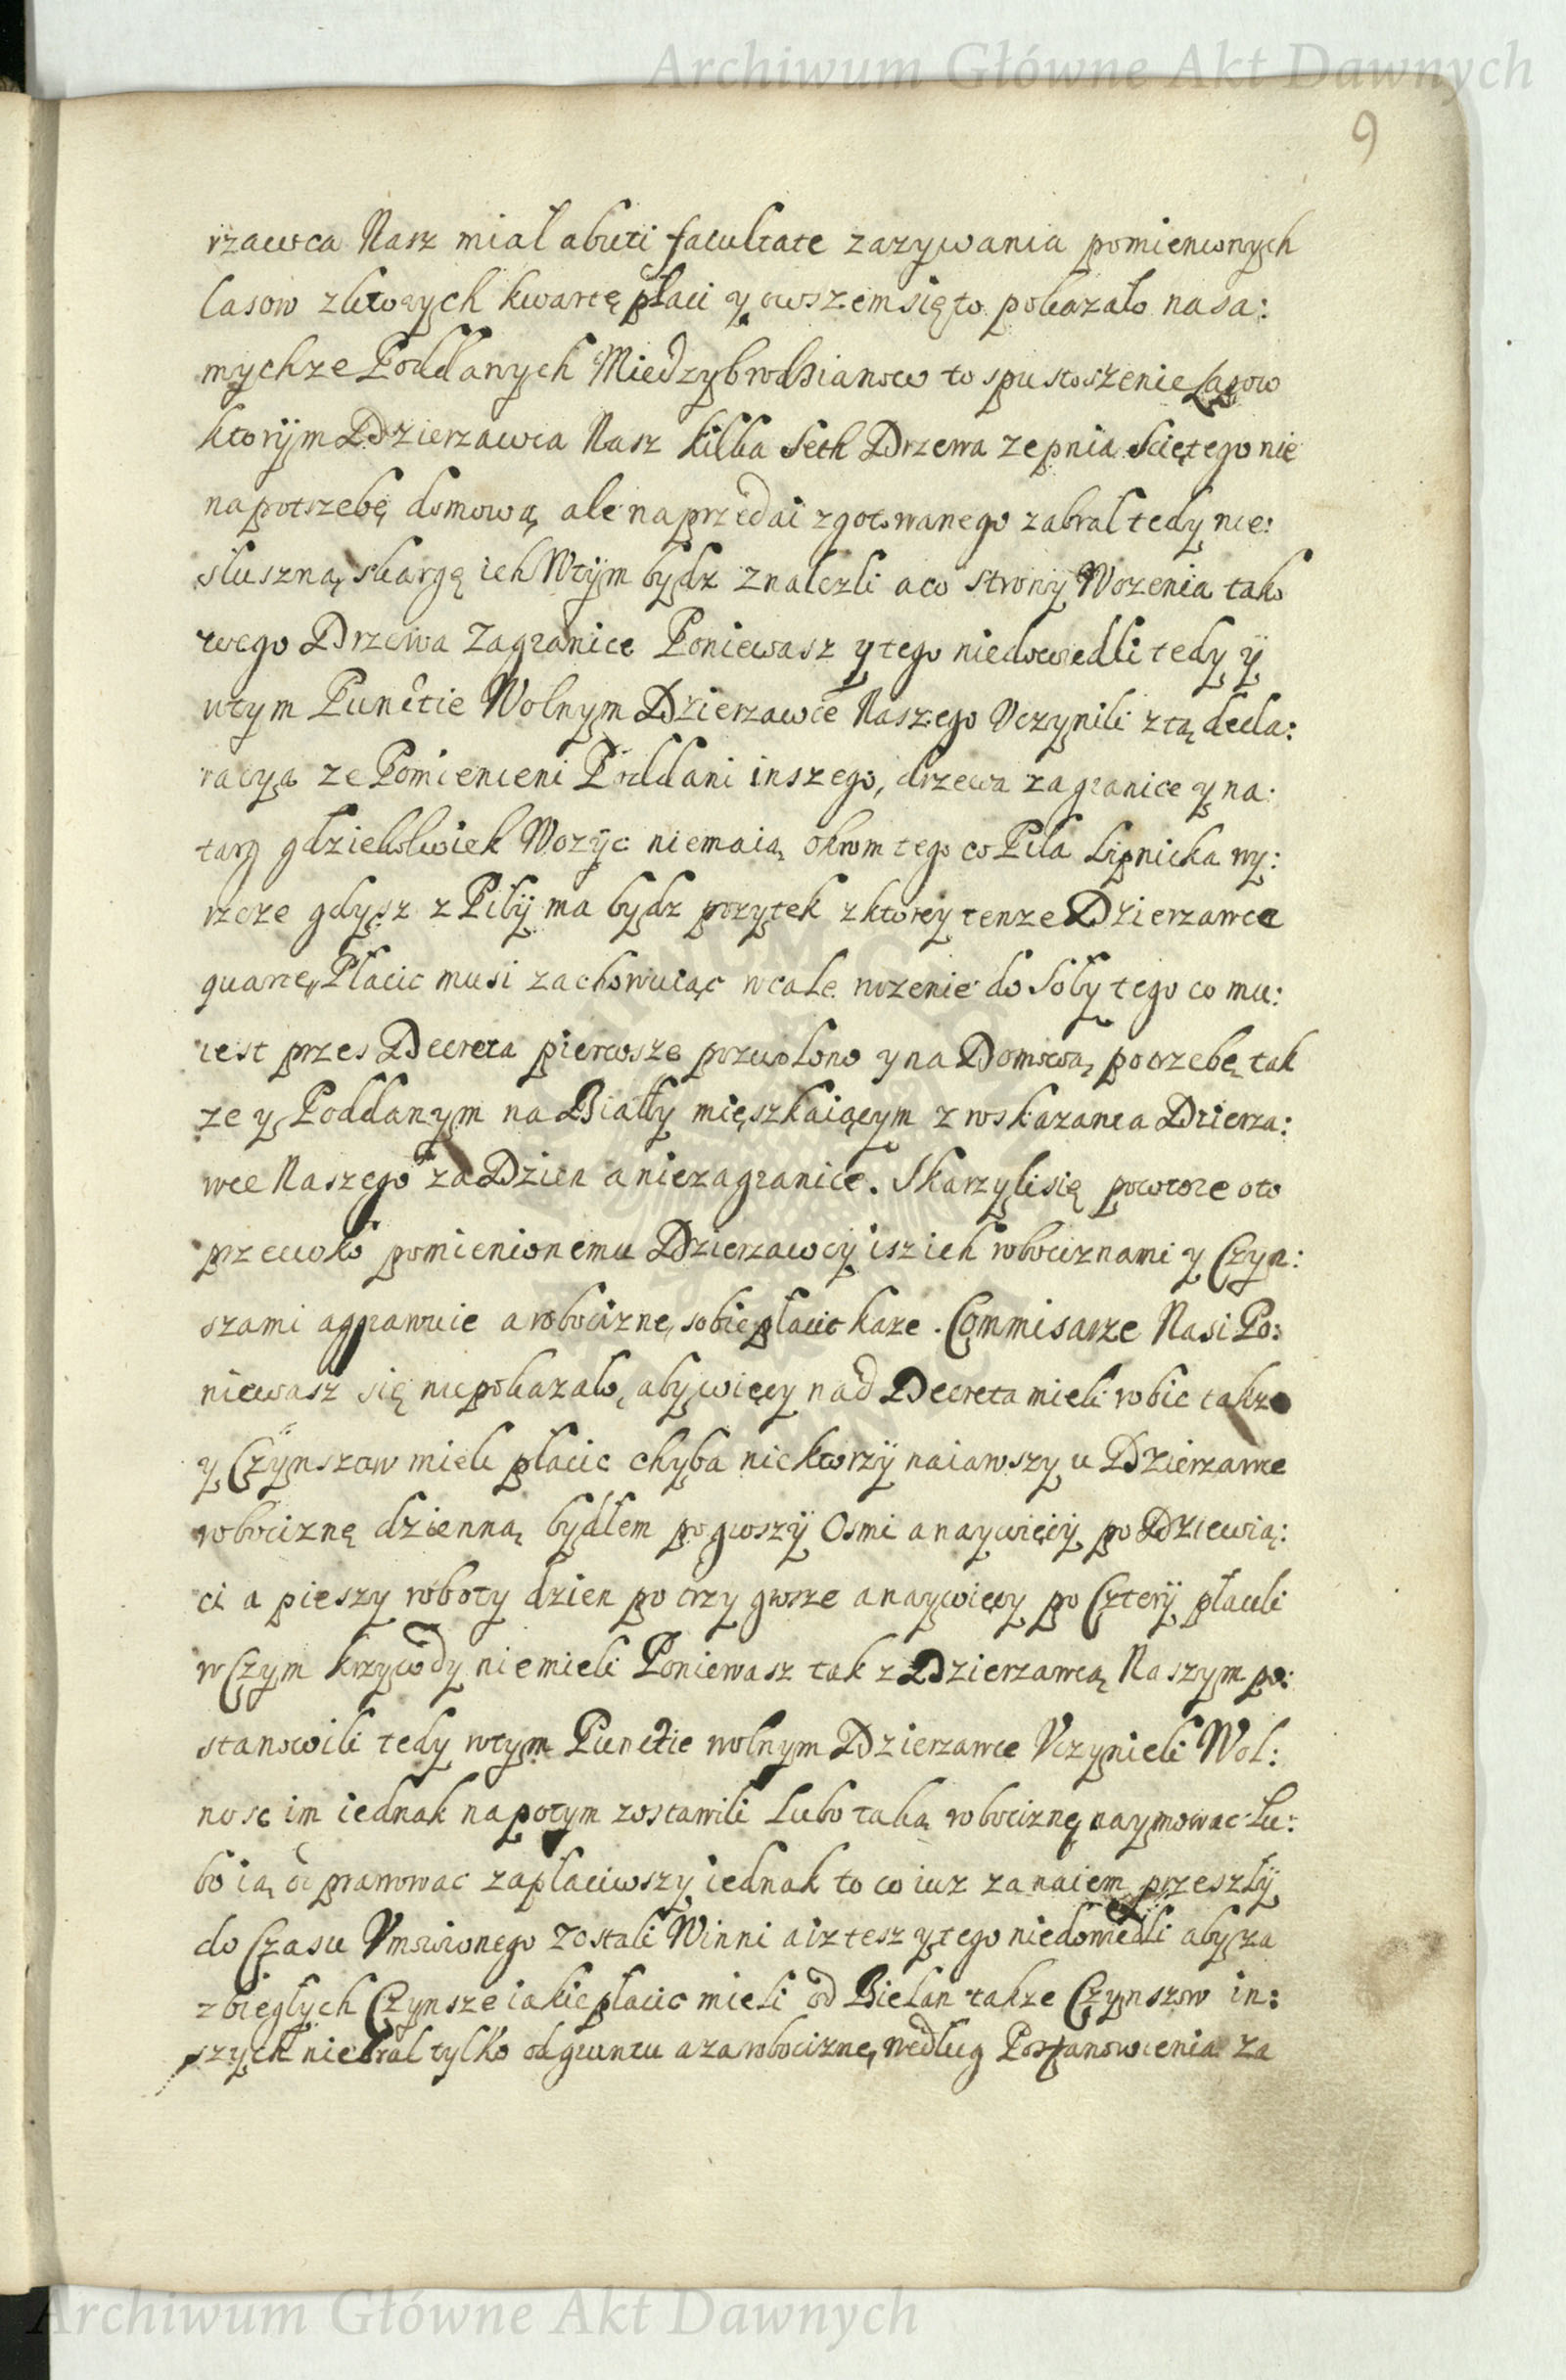 Archiwum Główne Akt Dawnych
9
rzawca Nasz mial abuti facultate zazywania pomienionych
Lasow zktorych kwartę płaci y owszem się to pokazało na sa:
mychze Poddanych Miedzybrodzianow to spustoszenie Lasow
ktorÿm Dzierzawca Nasz kilka Seth Drzewa ze pnia sciętego nie
na potrzebę domową ale na przedai zgotowanego zabral tedy nie:
słuszną skargę ich Wtÿm bydz znalezli a co strony Wozenia tako
wego Drzewa Zagranice Poniewasz y tego niedowiedli tedy ÿ
wtym Punctie Wolnym Dzierzawce Naszego Vczynili z tą decla:
racyą ze Pomienieni Poddani inszego, drzewa za granice y na:
targ gdziekolwiek Wozÿc niemaią okrom tego co Piła Lipnicka wy:
rzeze gdysz z Piłÿ ma bydz pozytek z ktorey tenze Dzierzawca
quartę Płacic musi zachowuiąc wcale wozenie do Soły tego co mu:
iest przes Decreta pierwsze pozwolono y na Domową potrzebę tak
ze y Poddanym na Białły mięszkaiącym z wskazania Dzierza:
wce Naszego za Dzien a niezagranice. Skarzyli się powtore oto
przeciwko pomienionemu Dzierzawcÿ isz ich robociznami y Czyn:
szami aggrawuie a robociznę sobie płacic kaze. Commisarze Nasi Po:
niewasz się niepokazało, aby więcy nad Decreta mieli robic takze
y Czÿnszow mieli płacic chyba niektorzÿ naiąwszy u Dzierzawce
robociznę dzienną bydłem po groszÿ Osmi a naywięcÿ po Dziewią:
ci a pieszy roboty dzien po trzy grosze a naywięcy po Czterÿ płacili
w Czym krzywdy niemieli Poniewasz tak z Dzierzawcą Naszym po:
stanowili tedy wtym Punctie wolnym Dzierzawce Vczynieli Wol:
nosc im iednak napotym zostawili Lubo taką robociznę naymowac Lu:
bo ią odprawowac zapłaciwszy iednak to co iuz za naiem przeszłÿ
do Czasu Vmowionego Zostali Winni a iz tesz ytego niedowiedli aby za
zbiegłych Czynsze iakie płacic mieli od Bielan takze Czynszow in:
szych niebrał tylko od gruntu a za robociznę według Postanowienia za
Archiwum Główne Akt Dawnych